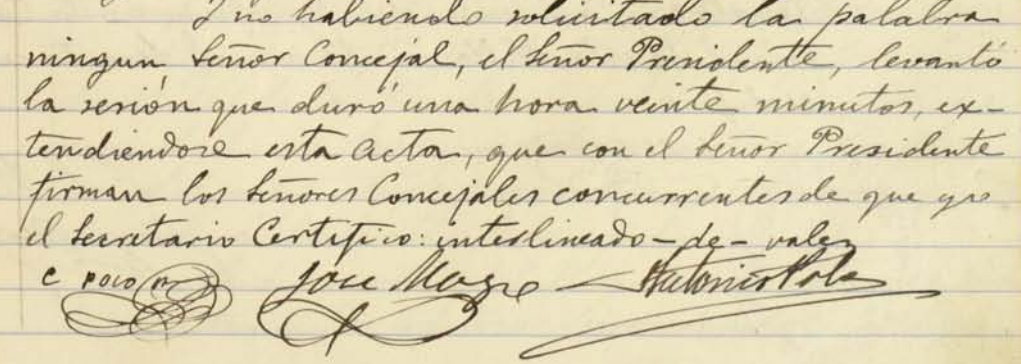 I no habiendo solicitado la palabra
ningun Señor Concejal, el Señor Presidente, levantó
la sesión que duró una hora veinte minutos, ex-
tendiendose esta acta, que con el Señor Presidente
firman los Señores Concejales concurrentes de que yo
el Secretario Certifico: interlineado - de - vale
C POLO José Antonio